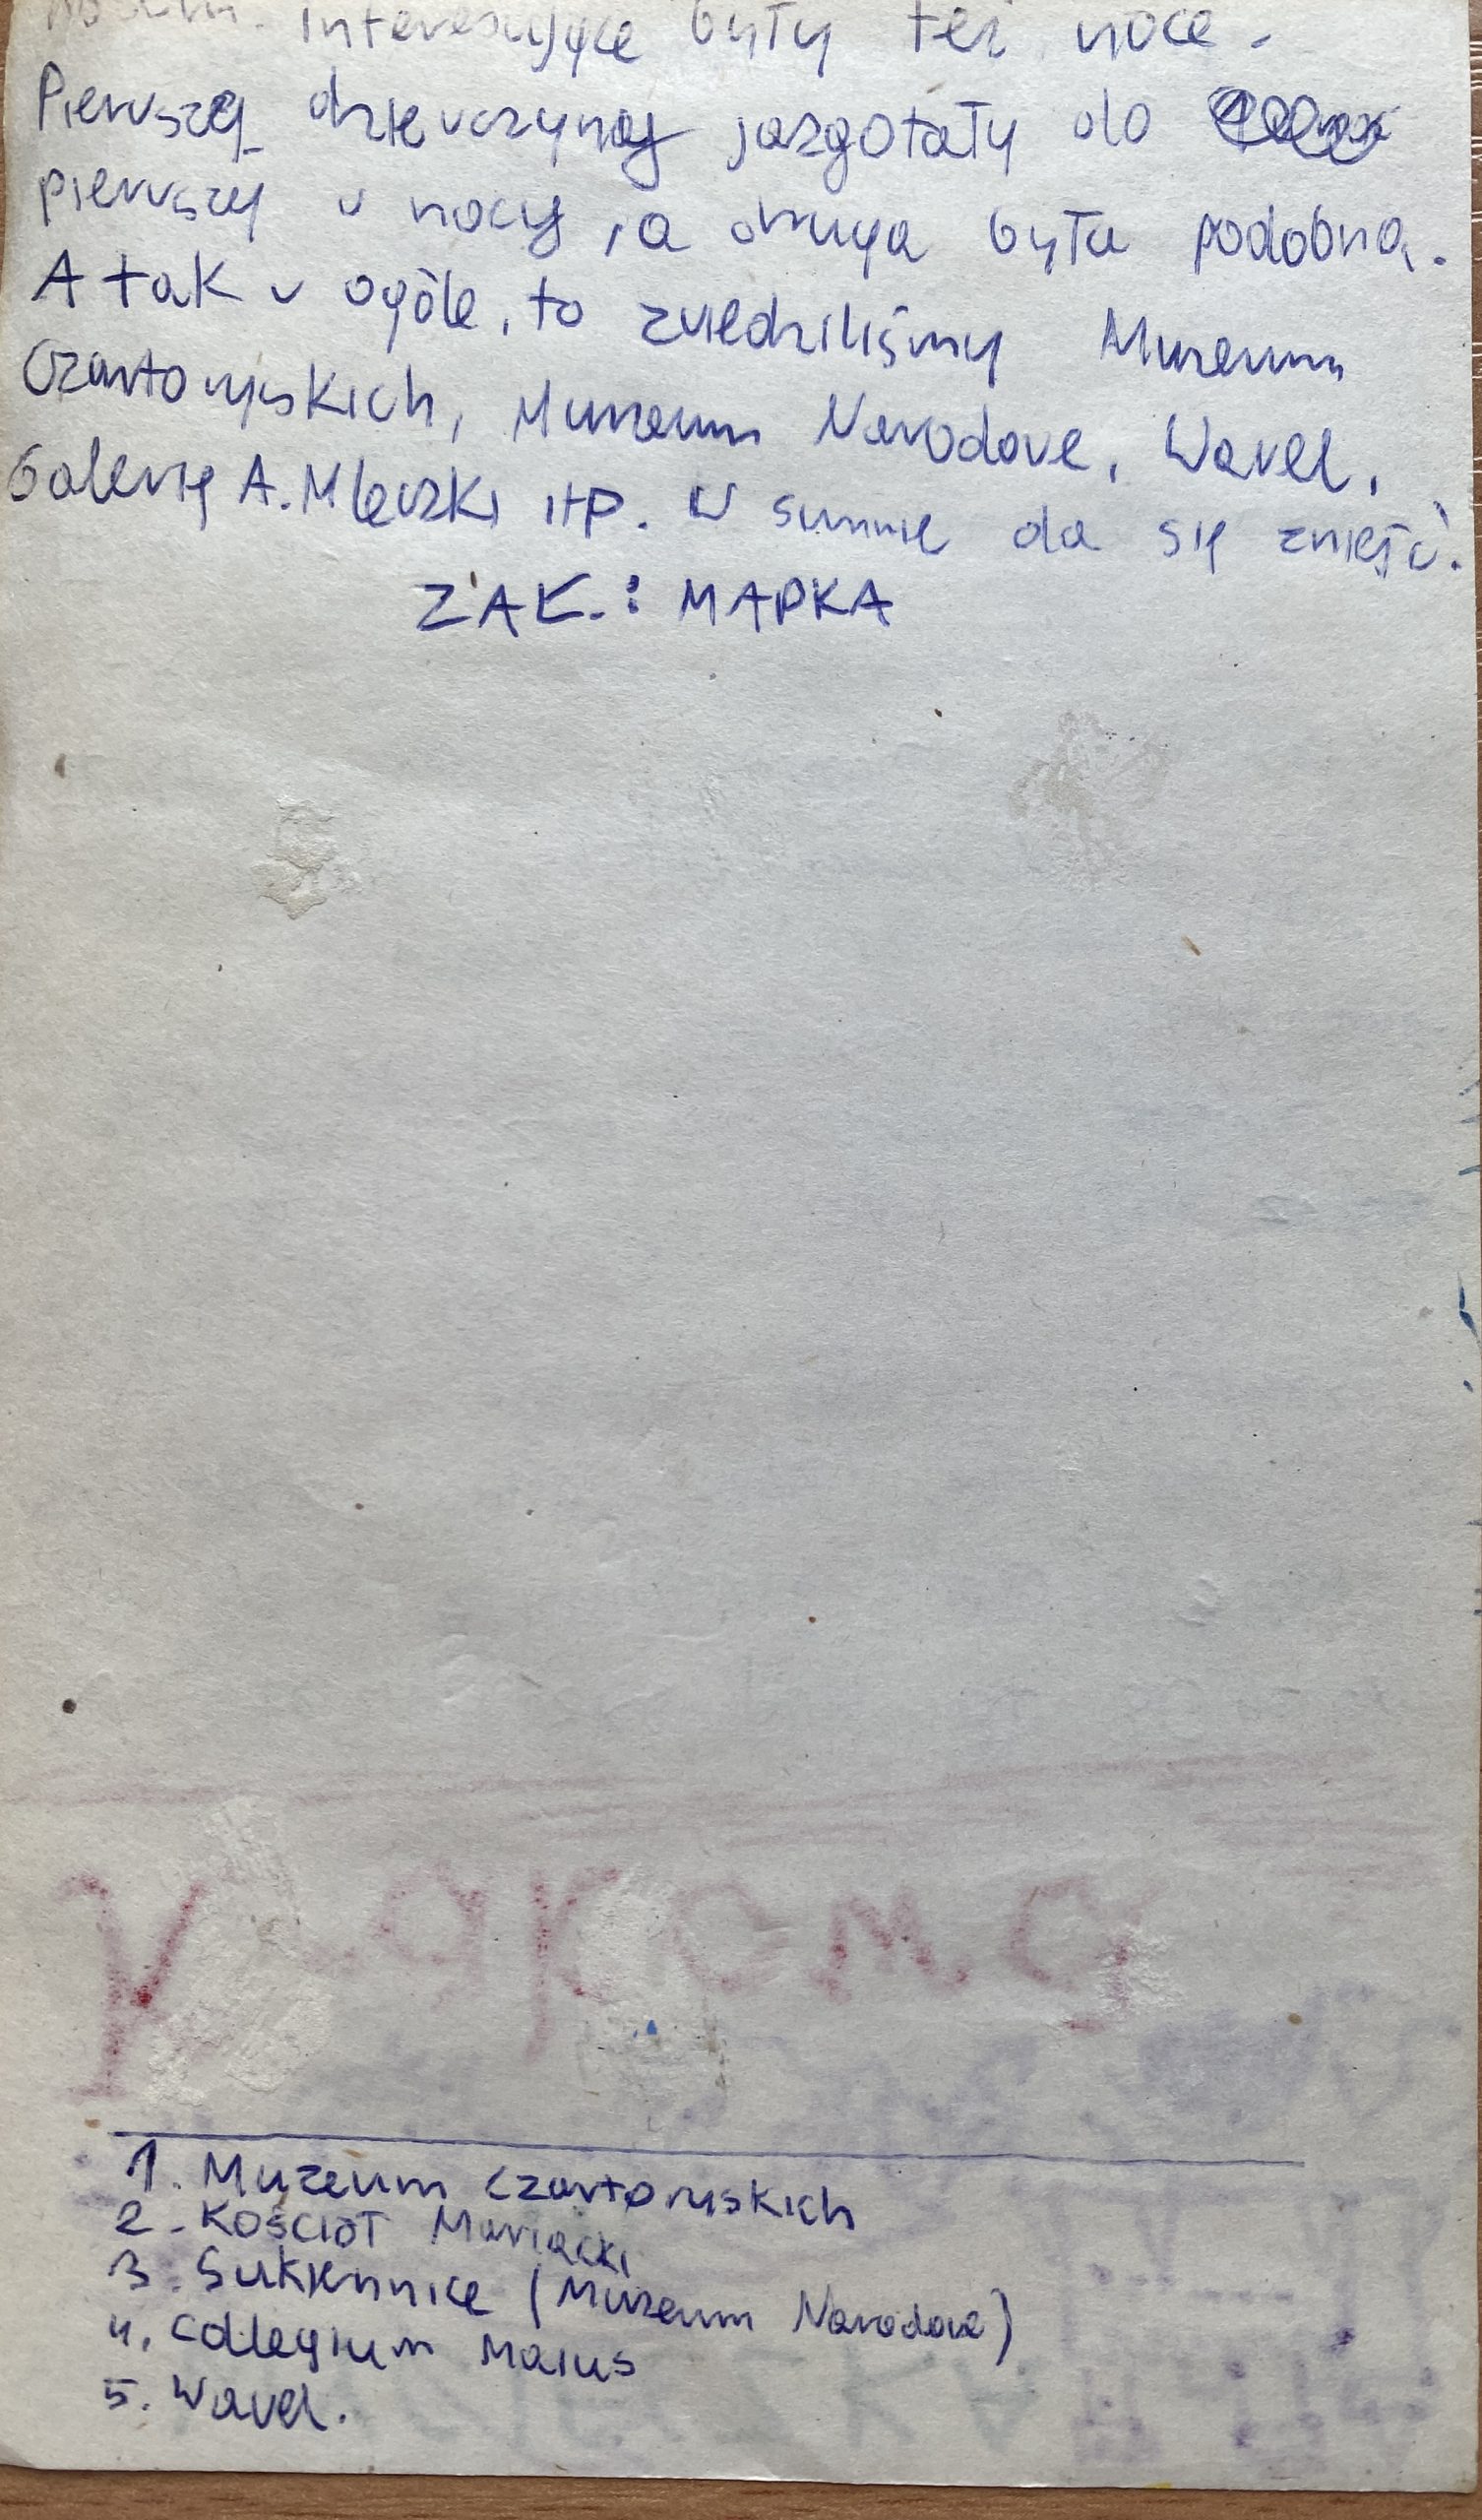 Interesujące były też noce.
Pierwszej dziewczyny jazgotały do
pierwszej w nocy, a druga była podobna.
A tak w ogóle, to zwiedziliśmy Muzeum
Czartoryskich, Muzeum Narodowe, Wawel,
Galerię A. Mleczki itp. W sumie da się znieść.
ZAŁ.: MAPKA
1. Muzeum Czartoryskich
2. Kościół Mariacki
3. Sukiennice (Muzeum Narodowe)
4. Collegium Maius
5. Wawel.